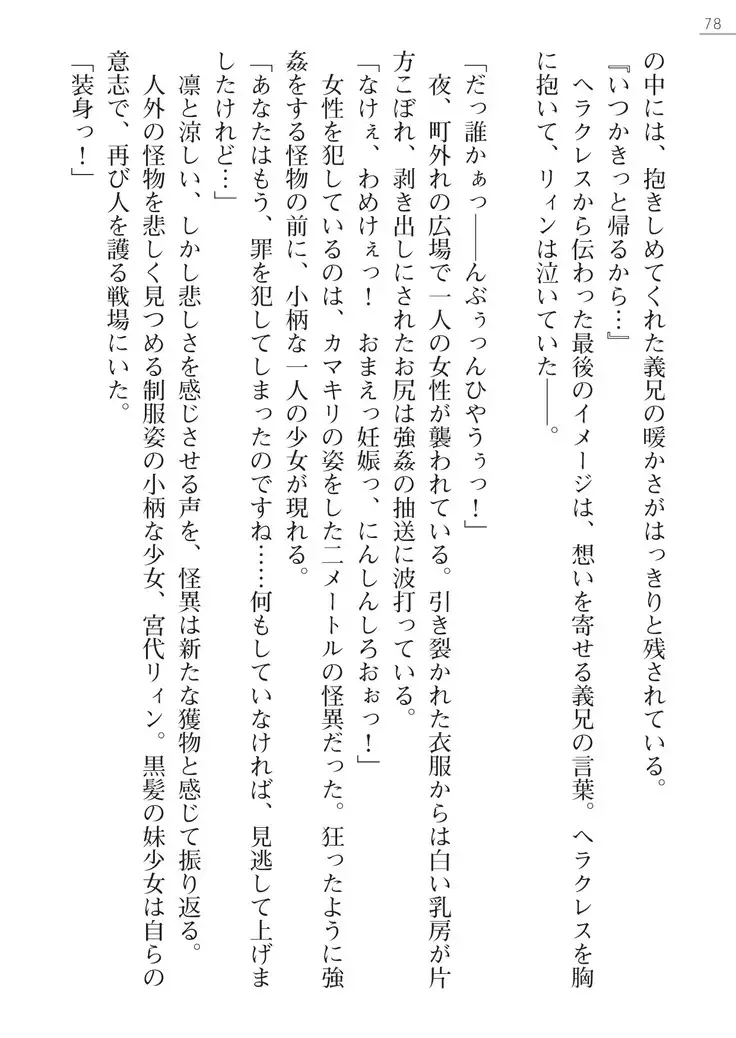 78
の中には、抱きしめてくれた義兄の暖かさがはっきりと残されている。
『いつかきっと帰るから…』
ヘラクレスから伝わった最後のイメージは、想いを寄せる義兄の言葉。ヘラクレスを胸
に抱いて、リィンは泣いていた――。
「だっ誰かぁっ――んぶぅっんひやうぅっ！」
夜、町外れの広場で一人の女性が襲われている。引き裂かれた衣服からは白い乳房が片
方こぼれ、剥き出しにされたお尻は強姦の抽送に波打っている。
「なけぇ、わめけぇっ！　おまえっ妊娠っ、にんしんしろおぉっ！」
女性を犯しているのは、カマキリの姿をした二メートルの怪異だった。狂ったように強
姦をする怪物の前に、小柄な一人の少女が現れる。
「あなたはもう、罪を犯してしまったのですね……何もしていなければ、見逃して上げま
したけれど…」
凛と涼しい、しかし悲しさを感じさせる声を、怪異は新たな獲物と感じて振り返る。
人外の怪物を悲しく見つめる制服姿の小柄な少女、宮代リィン。黒髪の妹少女は自らの
意志で、再び人を護る戦場にいた。
「装身っ！」